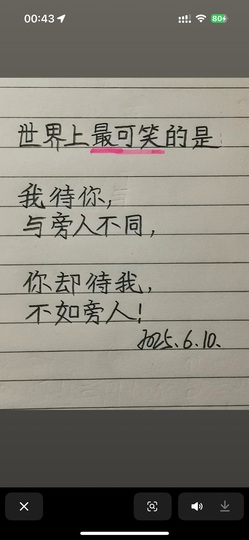 00:43
80
世界上最可笑的是
我待你，
与旁人不同，
你却待我，
不如旁人！
2025.6.10.